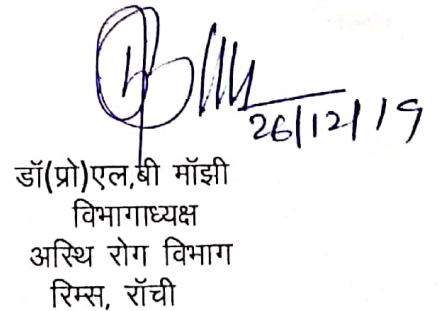 26/12/19
डॉ(प्रो)एल,बी मॉझी
विभागाध्यक्ष
अस्थि रोग विभाग
रिम्स, रॉची